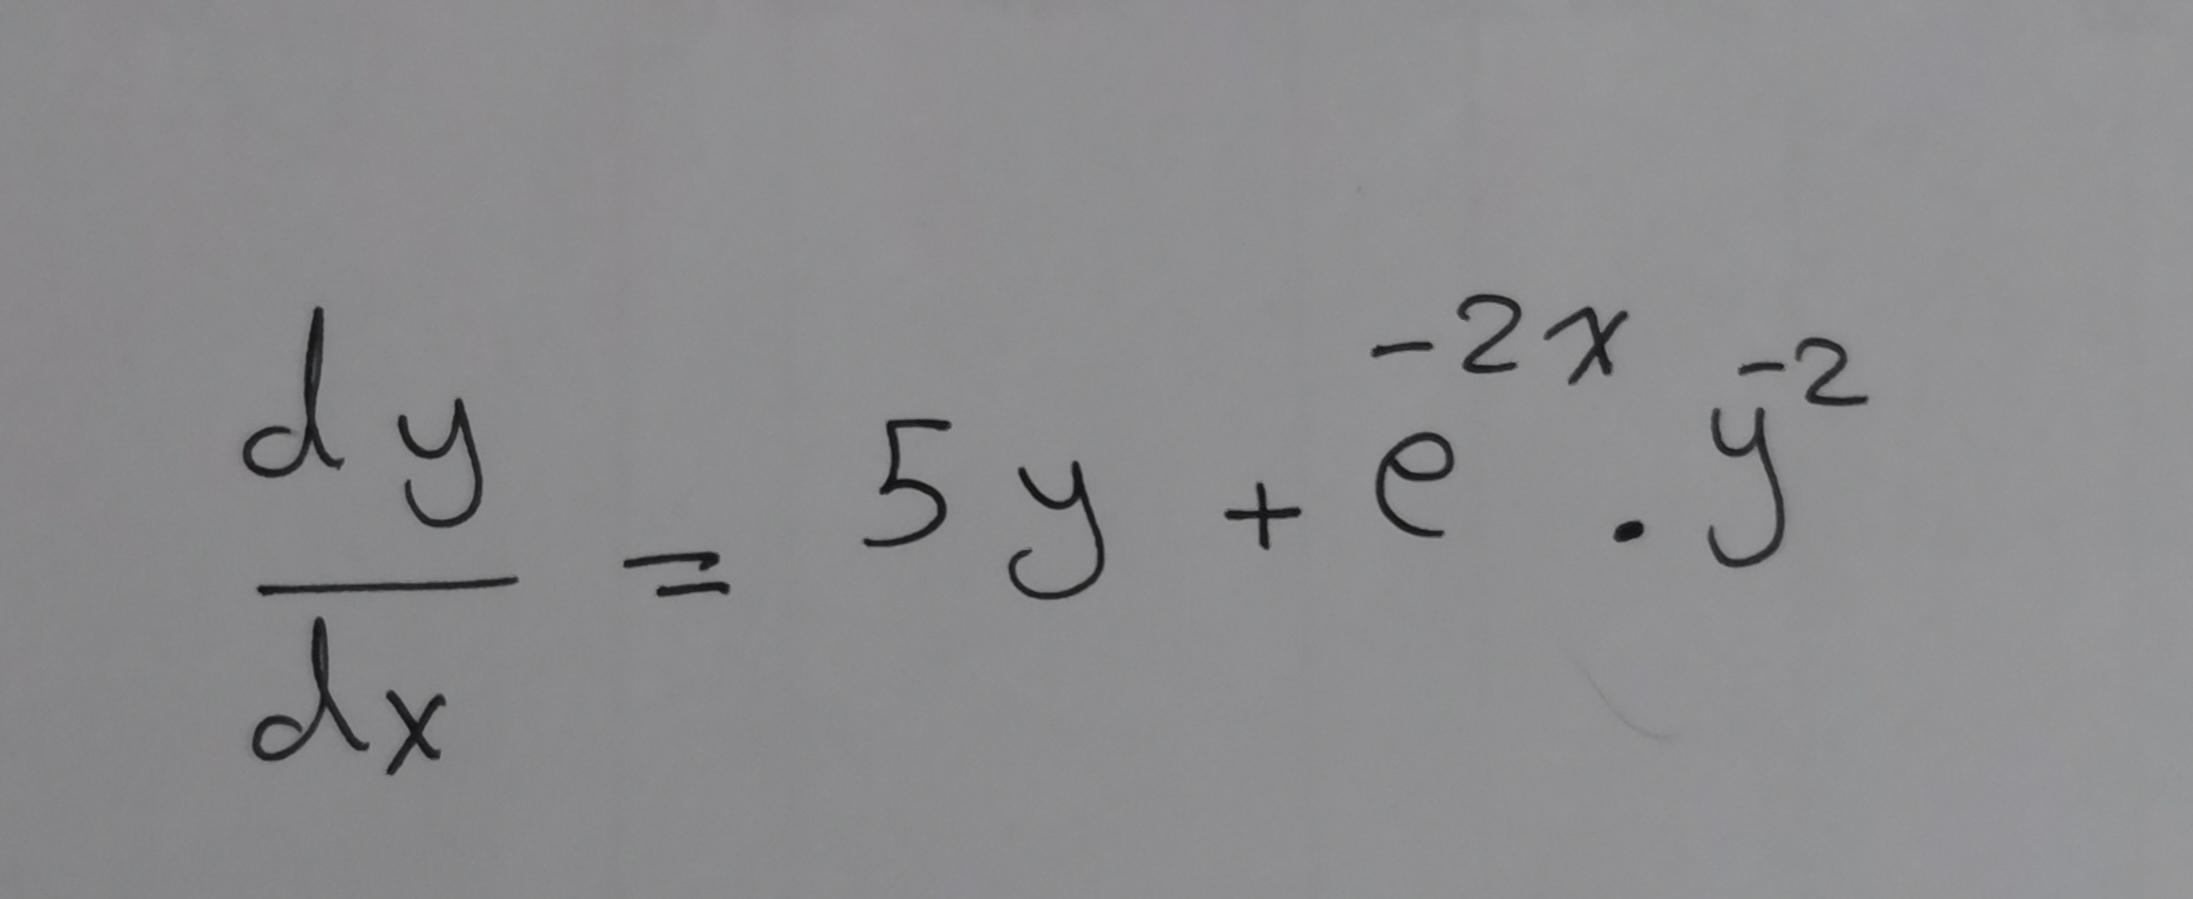 dy/dx = 5y + e^{-2x} . y^{-2}